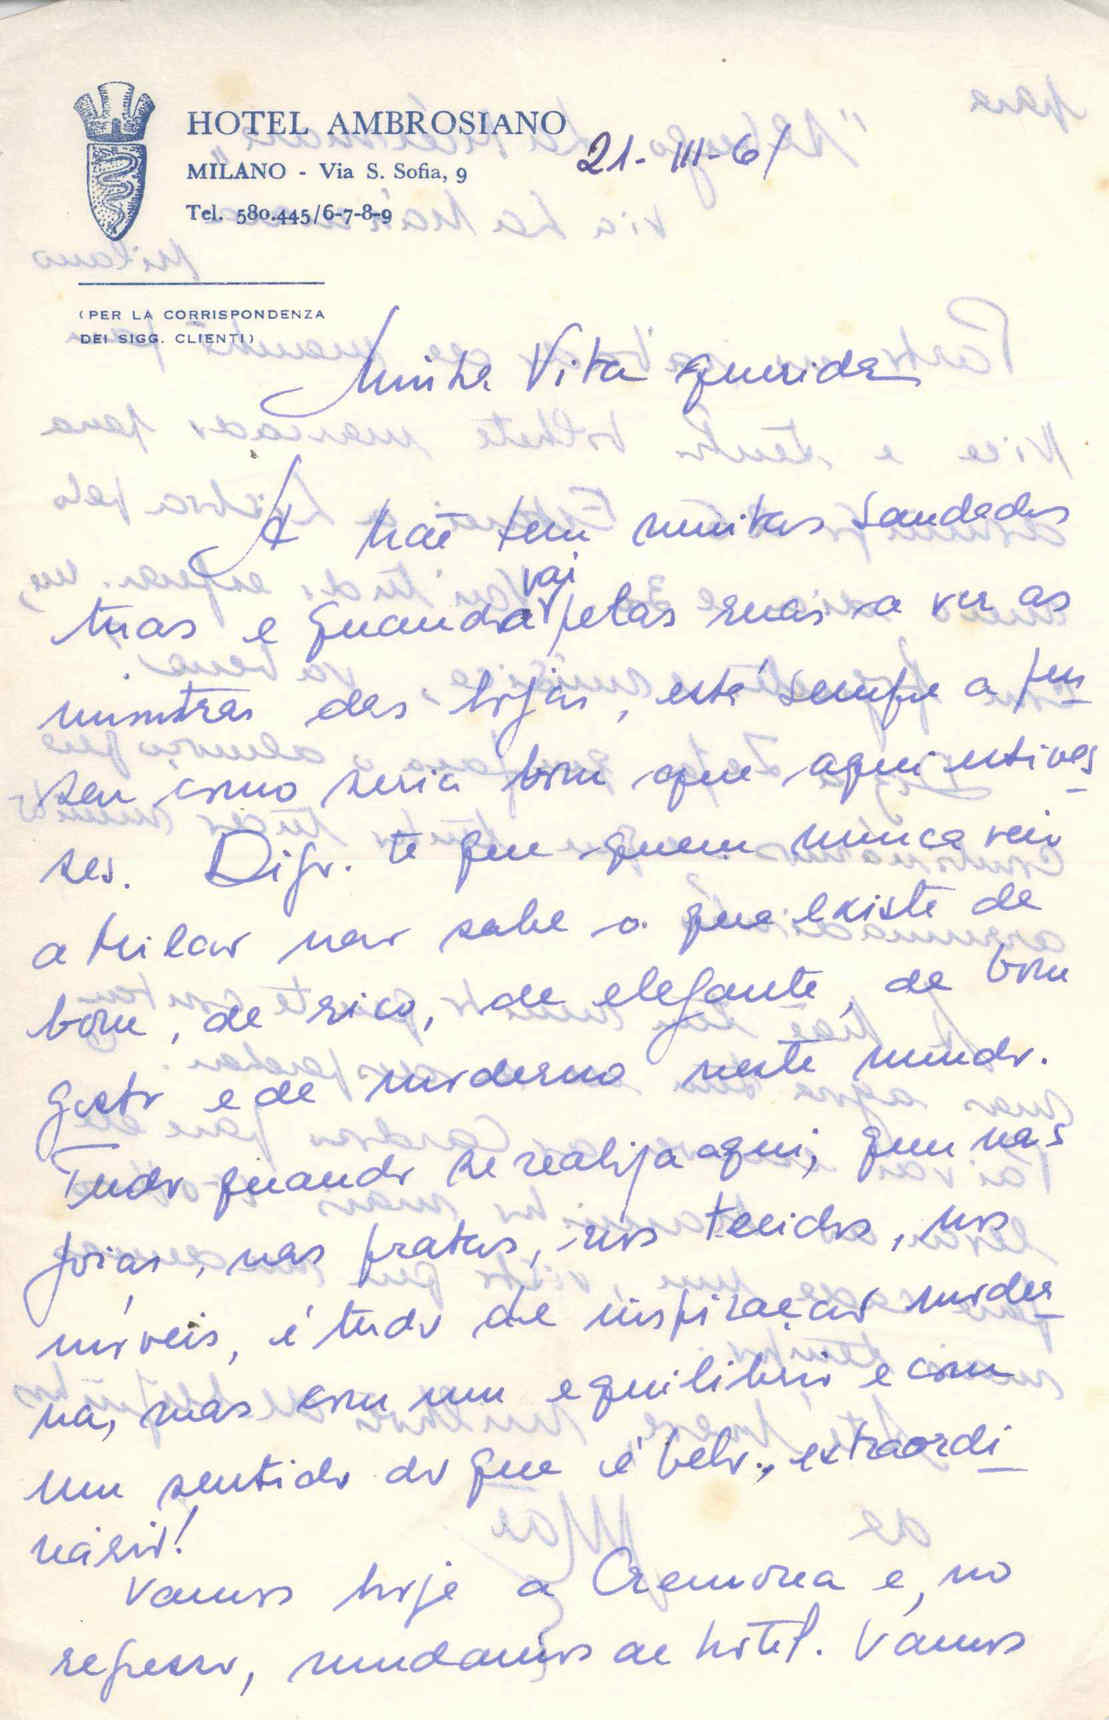 HOTEL AMBROSIANO
MILANO - Via S. Sofia, 9
Tel. 580.445/6-7-8-9
21-III-61
(PER LA CORRISPONDENZA
DEI SIGG. CLIENTI)
Minha Vita querida
A Mãe tem muitas saudades
tuas e quando vai pelas ruas a ver as
montras das lojas, está sempre a pen
sar como seria bom que aqui estives
ses. Digo-te que quem nunca veio
a Milão não sabe o que existe de
bom, de rico, de elegante, de bom
gosto e de moderno neste mundo.
Tudo quando se realiza aqui, quer nas
joias, nas pratas, nos tecidos, nos
móveis, é tudo de inspiração moder
na, mas com um equilibrio e com
um sentido do que é belo, extraordi
nário!
Vamos hoje a Cremona e, no
regresso, mudamos de hotel. Vamos